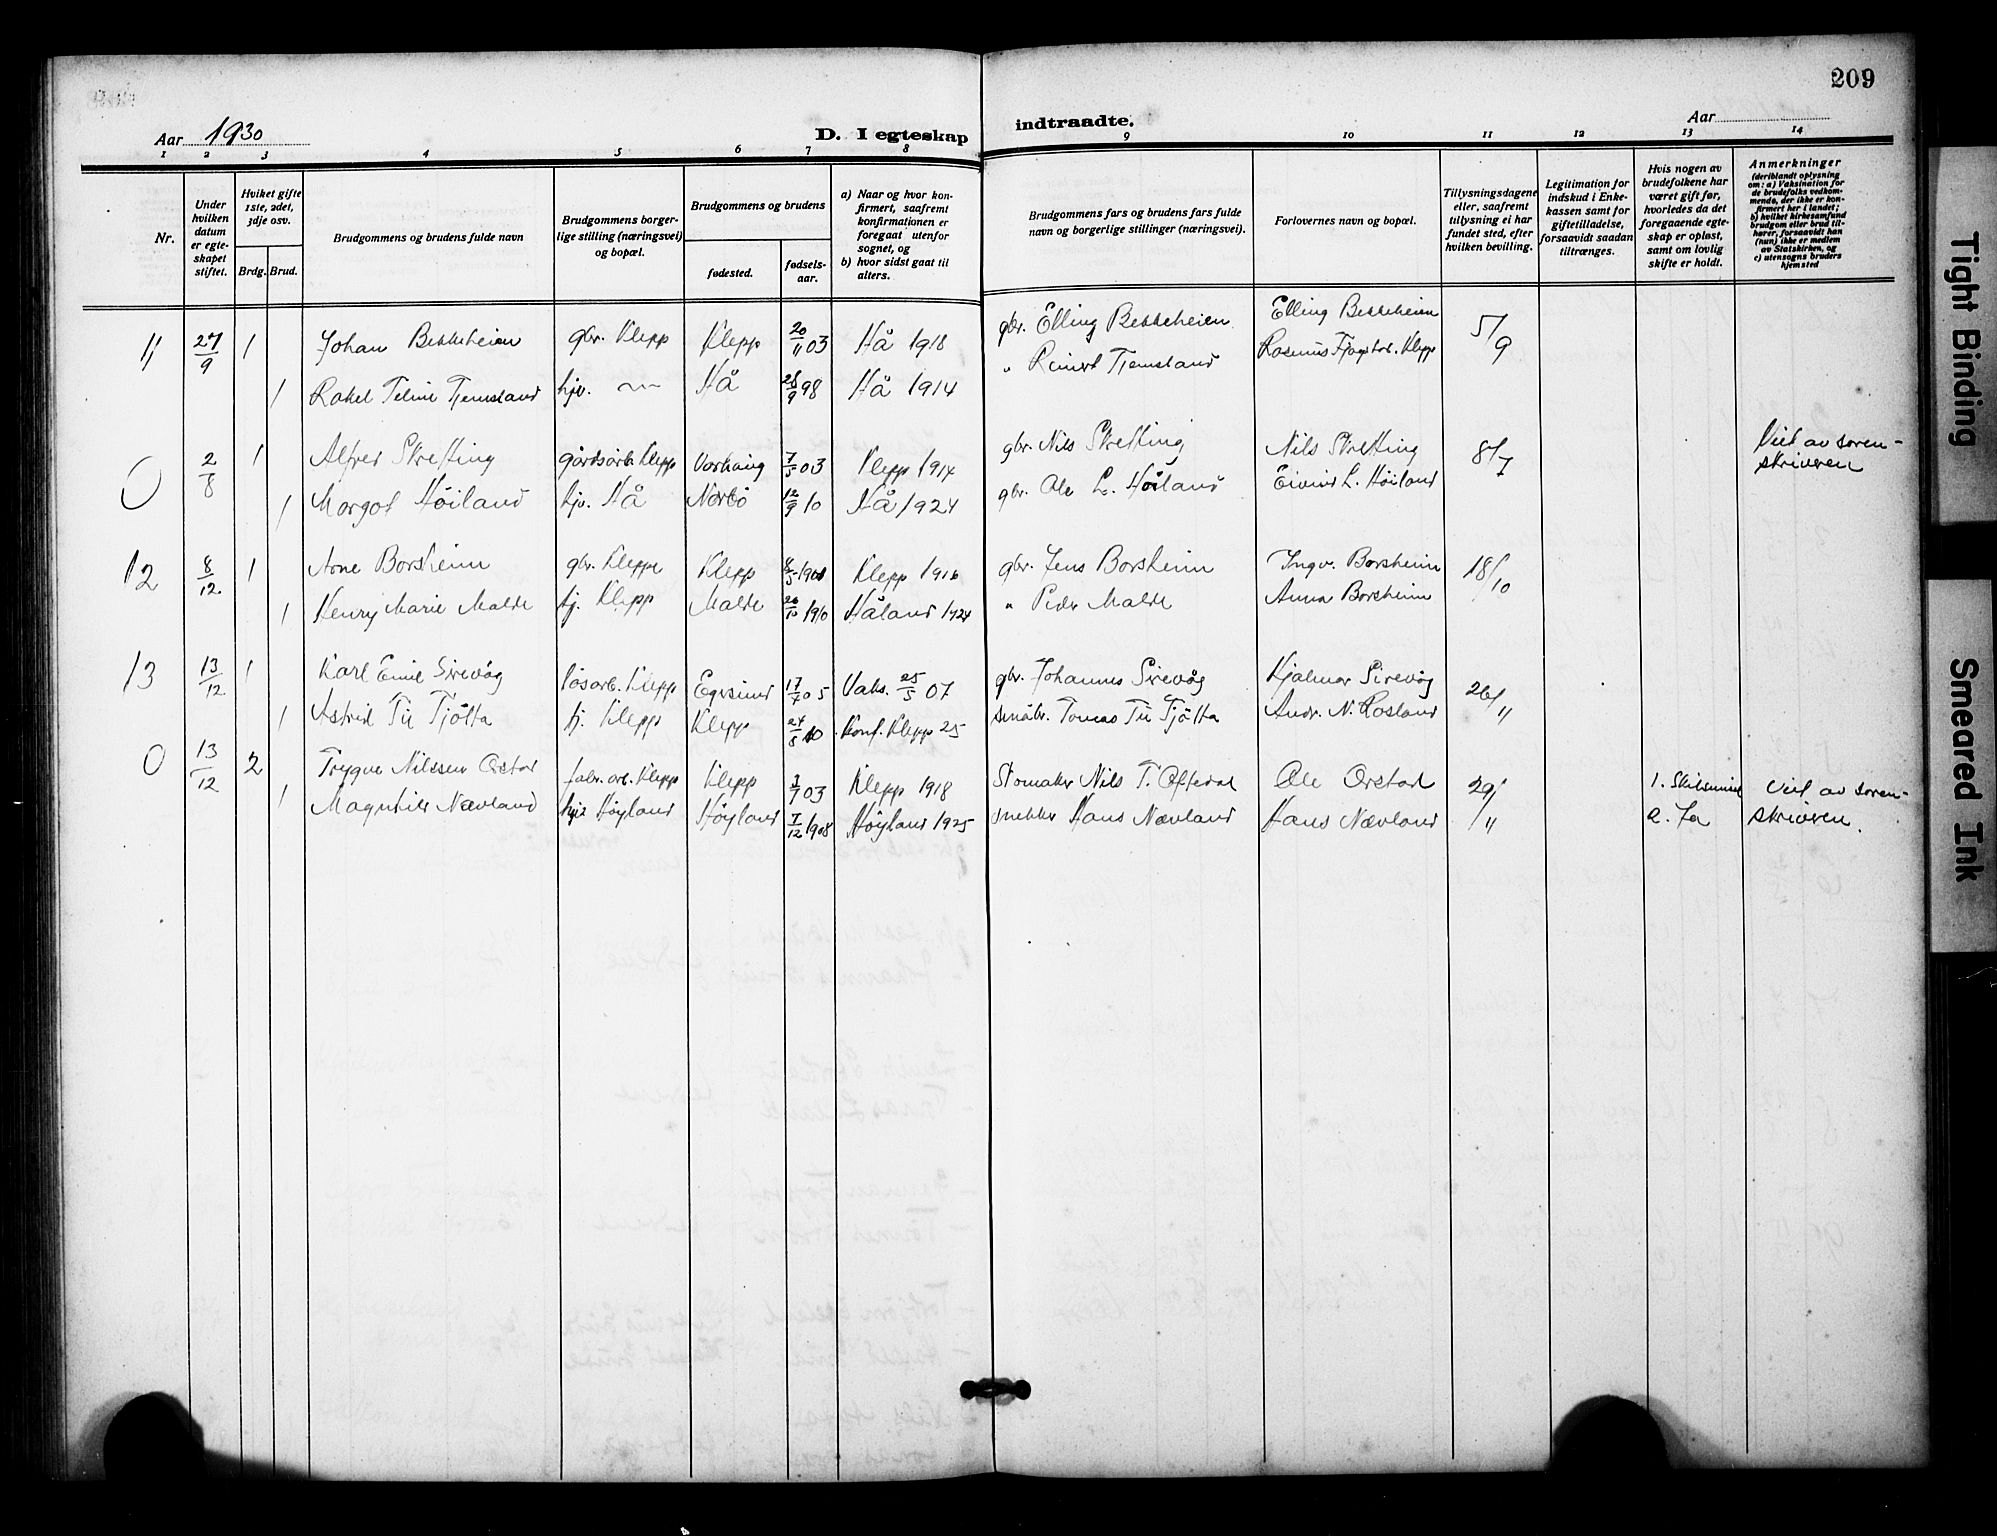 209
Aar 1930
D. I egteskap indtraadte.
Aar
1 2 3 4 5 6 7 8 9 10 11 12 13 14
Nr.
Under hvilken datum er egteskapet stiftet.
Hviket gifte 1ste, 2det, 3dje osv.
Brdg. Brud.
Brudgommens og brudens fulde navn
Brudgommens borgerlige stilling (næringsvei) og bopæl.
Brudgommens og brudens
fødested.
fødselsaar.
a) Naar og hvor konfirmert, saafremt konfirmationen er foregaat utenfor sognet, og
b) hvor sidst gaat til alters.
Brudgommens fars og brudens fars fulde navn og borgerlige stillinger (næringsvei).
Forlovernes navn og bopæl.
Tillysningsdagene eller, saafremt tillysning ei har fundet sted, efter hvilken bevilling.
Legitimation for indskud i Enkekassen samt for giftetilladelse, forsaavidt saadan tiltrænges.
Hvis nogen av brudefolkene har været gift før, hvorledes da det foregaaende egteskap er opløst, samt om lovlig skifte er holdt.
Anmerkninger (deriblandt oplysning om: a) Vaksination for de brudefolks vedkommende, der ikke er konfirmert her i landet; b) hvilket kirkesamfund brudgom eller brud tilhører, forsaavidt han (hun) ikke er medlem av Statskirken, og c) utensogns bruders hjemsted
11 27/9 1 Johan Bekkeheien gbr. Klepp Klepp 20/11 03 Hå 1918 gbr. Elling Bekkeheien Elling Bekkeheien 5/9
1 Rakel Teline Tjemsland hjv. Hå 28/9 98 Hå 1914 " Reinert Tjemsland Rasmus Klepp
0 2/8 1 Alfred Skretting gårdsarb. Klepp Varhaug 7/5 03 Klepp 1917 gbr. Nils Skretting Nils Skretting 8/7 Viet av sorenskriveren
1 Margot Höiland hjv. Hå Nærbö 12/9 10 Hå 1924 gbr. Ole L. Höiland Eivind L. Höiland
12 8/12 1 Arne Borsheim gbr. Kleppe Klepp 8/5 1901 Klepp 1916 gbr. Jens Borsheim Ingv. Borsheim 18/10
1 Henry Marie Malde hj. Klepp Malde 26/10 1910 Håland 1924 " Peder Malde Anna Borsheim
13 13/12 1 Karl Emil Sirevåg lösarb. Klepp Egersund 17/7 05 Vaks. 25/5 07 gbr. Johannes Sirevåg Hjalmar Sirevåg 26/11
1 Astrid Tu Tjötta hj. Klepp Klepp 24/8 10 Konf. Klepp 25 småbr. Tomas Tu Tjötta Andr. N. Rosland
0 13/12 2 Trygve Nilssen Orstad fabr. arb. Klepp Klepp 3/7 03 Klepp 1918 Skomaker Nils T. Oftedal Ole Orstad 29/11 1. Skilsmisse Viet av soren-
1 Magnhild Nævland hjv. Höyland Höyland 7/12 1908 Höyland 1925 snekker Hans Nævland Hans Nævland 2. Ja skriveren.
Tight Binding
Smeared Ink